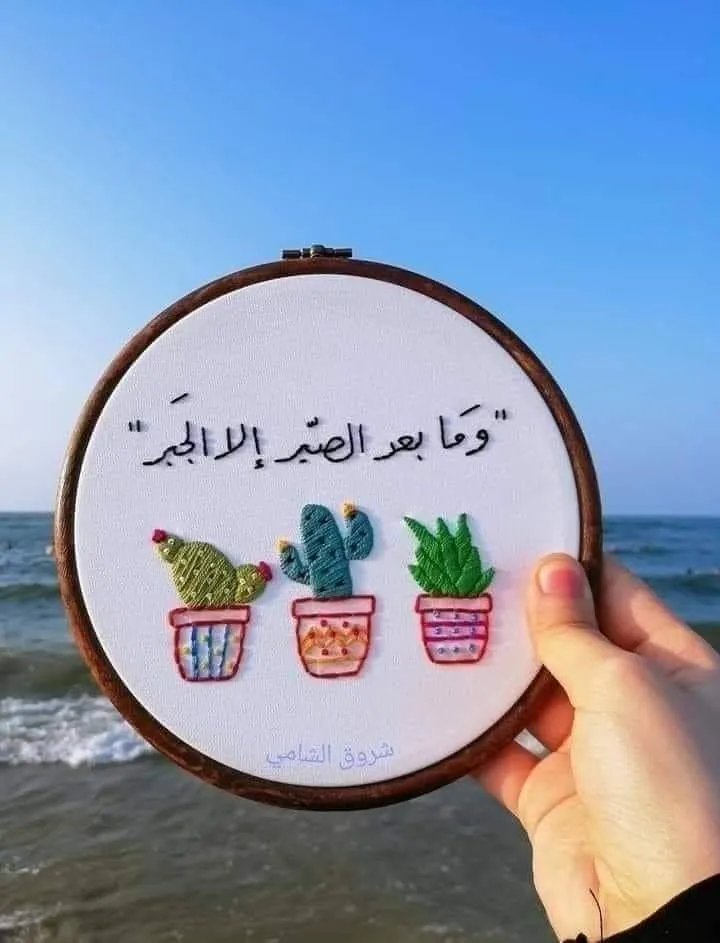 "وَمَا بعد الصبّر إلا الجَبر"
شروق الشامي